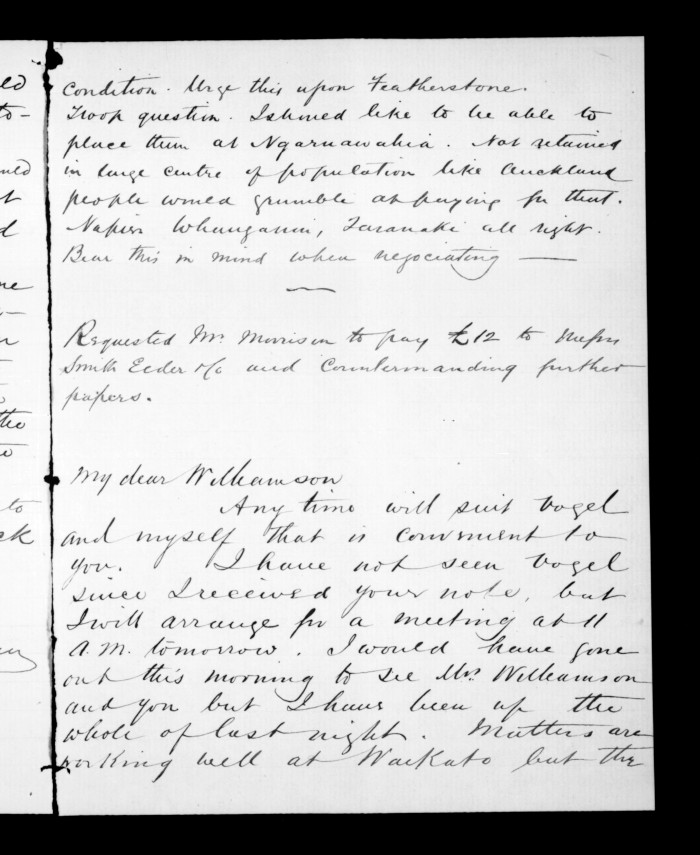 ld
to-
uld
t
d
ne
r
the
to
ck
condition. Urge this upon Featherstone.
Troop question. I should like to be able to
place them at Ngaruawahia. Not retained
in large centre of population like Auckland
people would grumble at paying for that.
Napier Whanganui, Taranaki all right.
Bear this in mind when negociating —
Requested Mr. Morrison to pay £12 to Messrs
Smith Elder & Co and countermanding further
papers.
My dear Williamson
Any time will suit Vogel
and myself that is convenient to
you. I have not seen Vogel
since I received your note, but
I will arrange for a meeting at 11
A.M. tomorrow. I would have gone
out this morning to see Mrs. Williamson
and you but I have been up the
whole of last night. Matters are
working well at Waikato but the